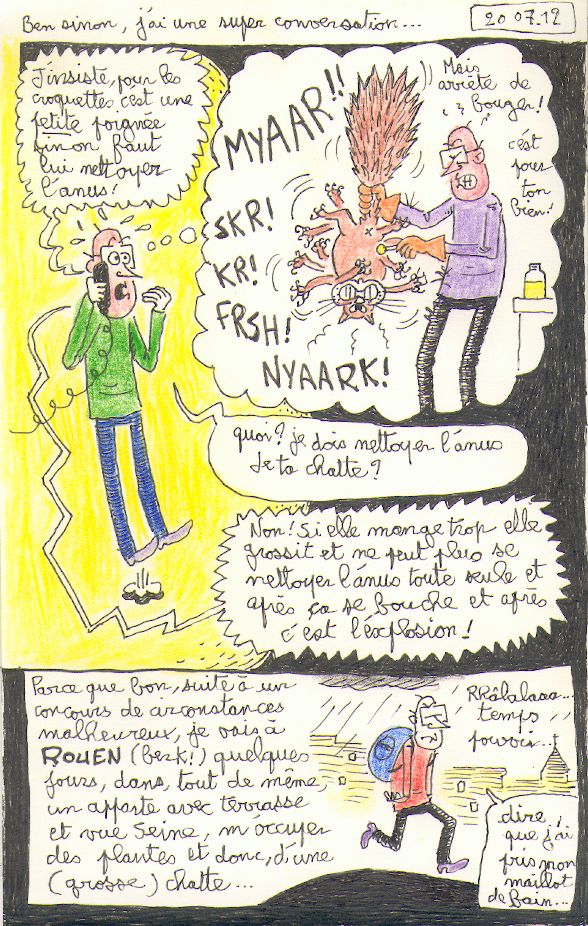 Ben sinon, j'ai une super conversation...
20 07.12
J'insiste, pour les
croquettes, c'est une
petite poignée
sinon faut
lui nettoyer
l'anus!
MYAAR!!
SKR!
KR!
FRSH!
NYAARK!
Mais
arrête de
bouger!
c'est
pour
ton
bien!
quoi? je dois nettoyer l'anus
de ta chatte?
Non! Si elle mange trop elle
grossit et ne peut plus se
nettoyer l'anus toute seule et
après ça se bouche et après
c'est l'explosion!
Parce que bon, suite à un
concours de circonstances
malheureux, je vais à
ROUEN (berk!) quelques
jours, dans, tout de même,
un apparte avec terrasse
et vue Seine, m'occuper
des plantes et donc, d'une
(grosse) chatte...
RRâlalaaa...
temps
pourri...
dire
que j'ai
pris mon
maillot
de bain...